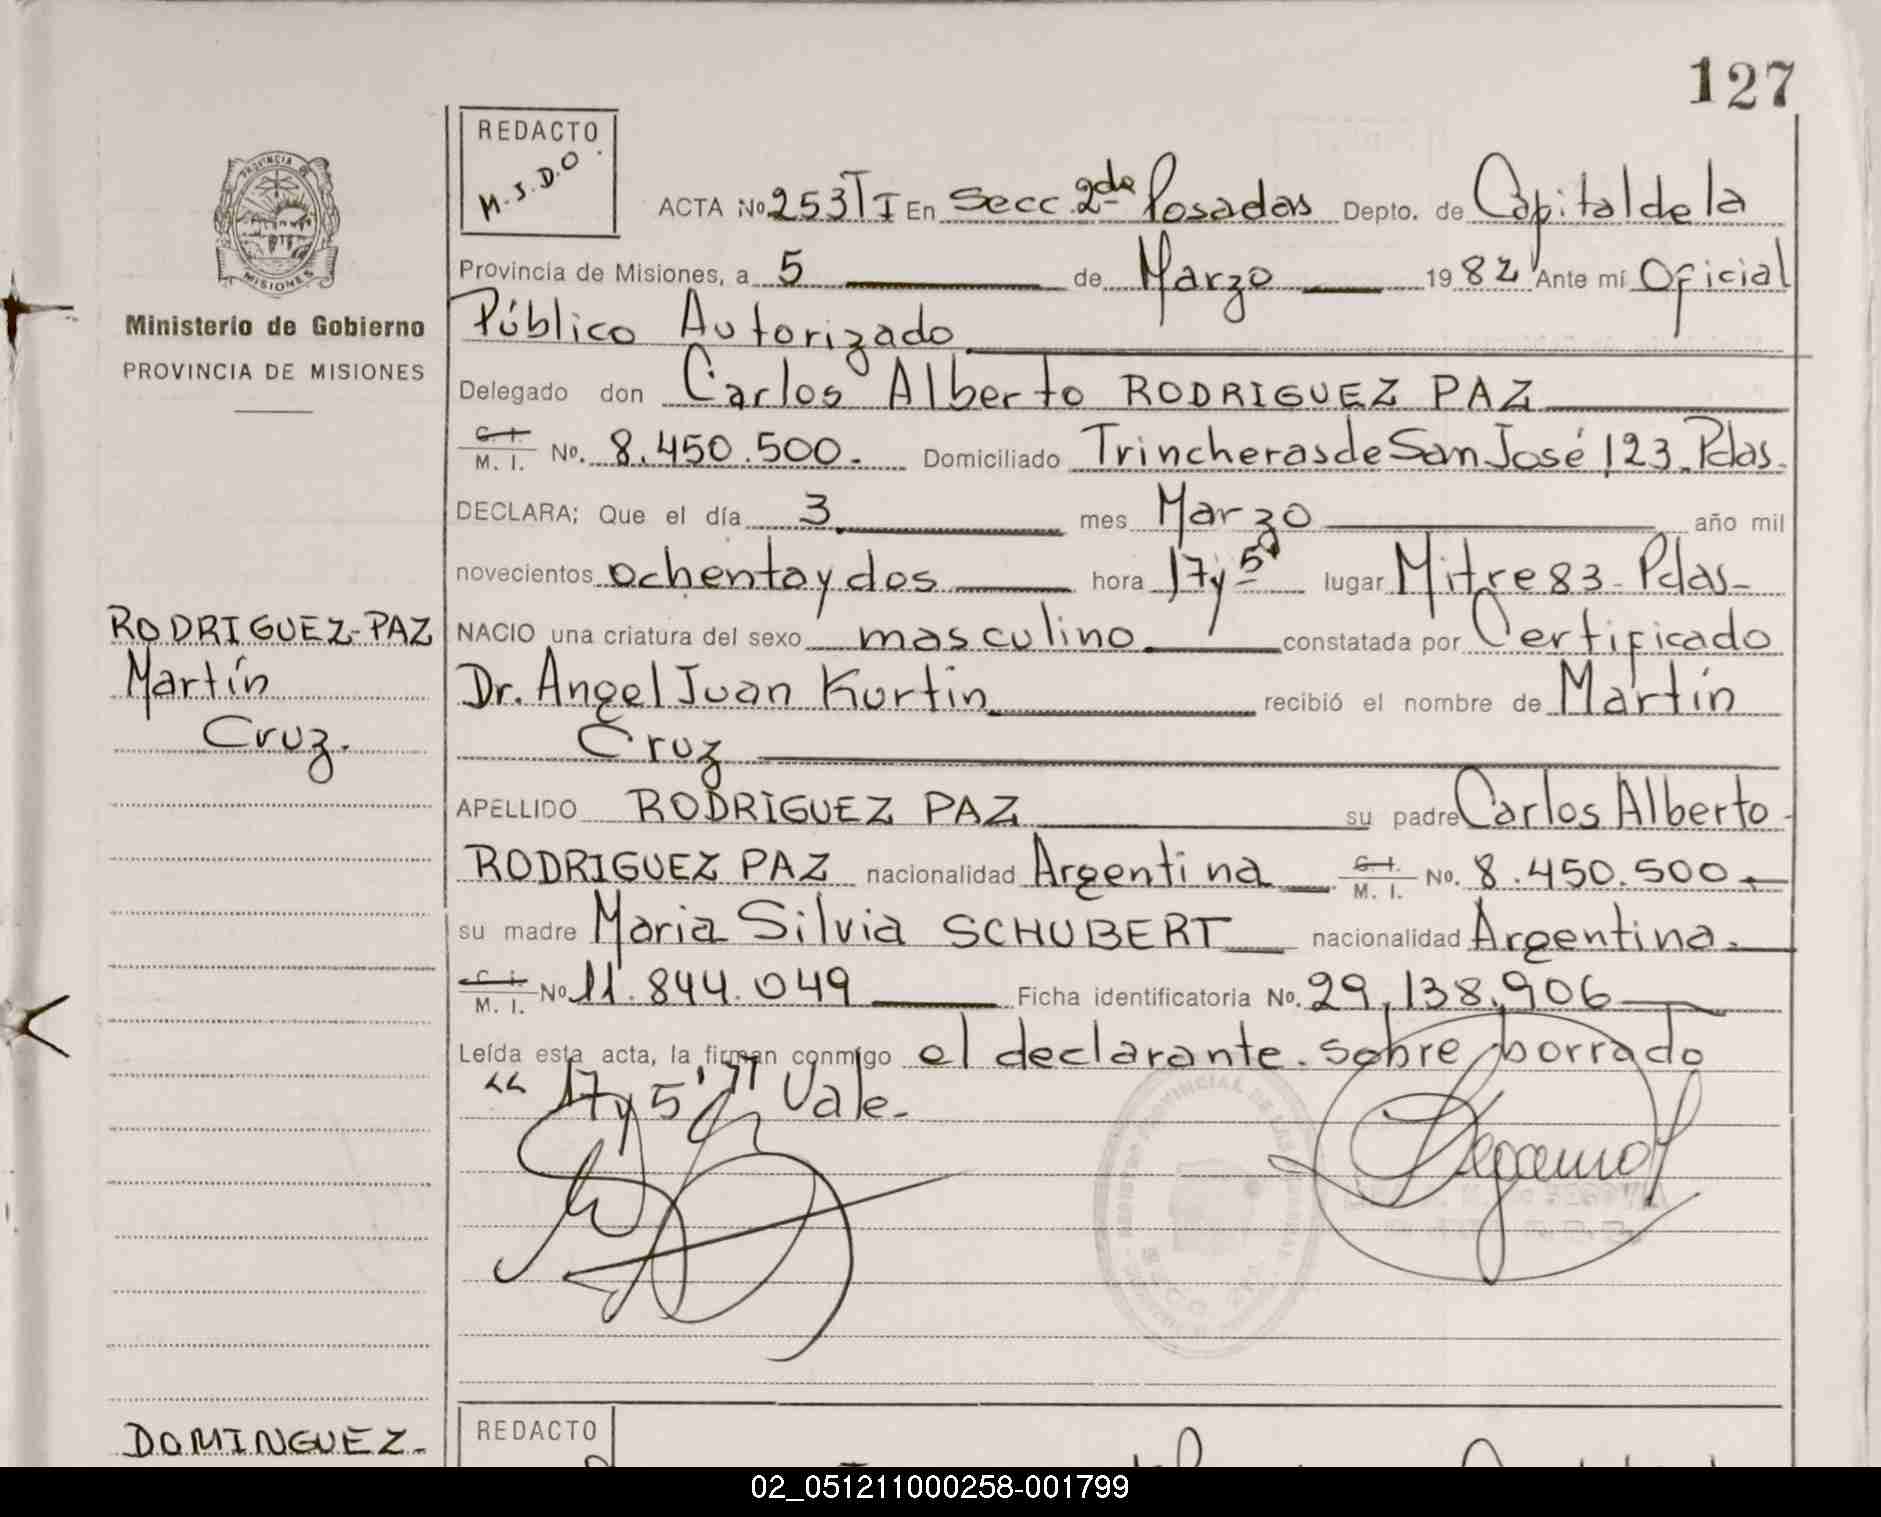 127
REDACTO
M.S.D.O.
ACTA Nº 253 TI En Secc. 2da Posadas Depto. de Capital de la
Provincia de Misiones, a 5 de Marzo 1982 Ante mí Oficial
Público Autorizado
Delegado don Carlos Alberto RODRIGUEZ PAZ
C. I. M. I. No. 8.450.500. Domiciliado Trincheras de San José 123. Pdas.
DECLARA; Que el día 3 mes Marzo año mil
novecientos ochenta y dos hora 17 y 5' lugar Mitre 83 - Pdas-
NACIO una criatura del sexo masculino constatada por Certificado
Dr. Angel Juan Kurtin recibió el nombre de Martín
Cruz
APELLIDO RODRIGUEZ PAZ su padre Carlos Alberto
RODRIGUEZ PAZ nacionalidad Argentina C. I. M. I. No. 8.450.500.
su madre Maria Silvia SCHUBERT nacionalidad Argentina.
C. I. M. I. Nº 11.844.049 Ficha identificatoria No. 29.138.906
Leída esta acta, la firman conmigo el declarante. sobre borrado
"17 y 5'" Vale.
PROVINCIA
MISIONES
Ministerio de Gobierno
PROVINCIA DE MISIONES
RODRIGUEZ-PAZ
Martín
Cruz.
DOMINGUEZ.
REDACTO
02_051211000258-001799